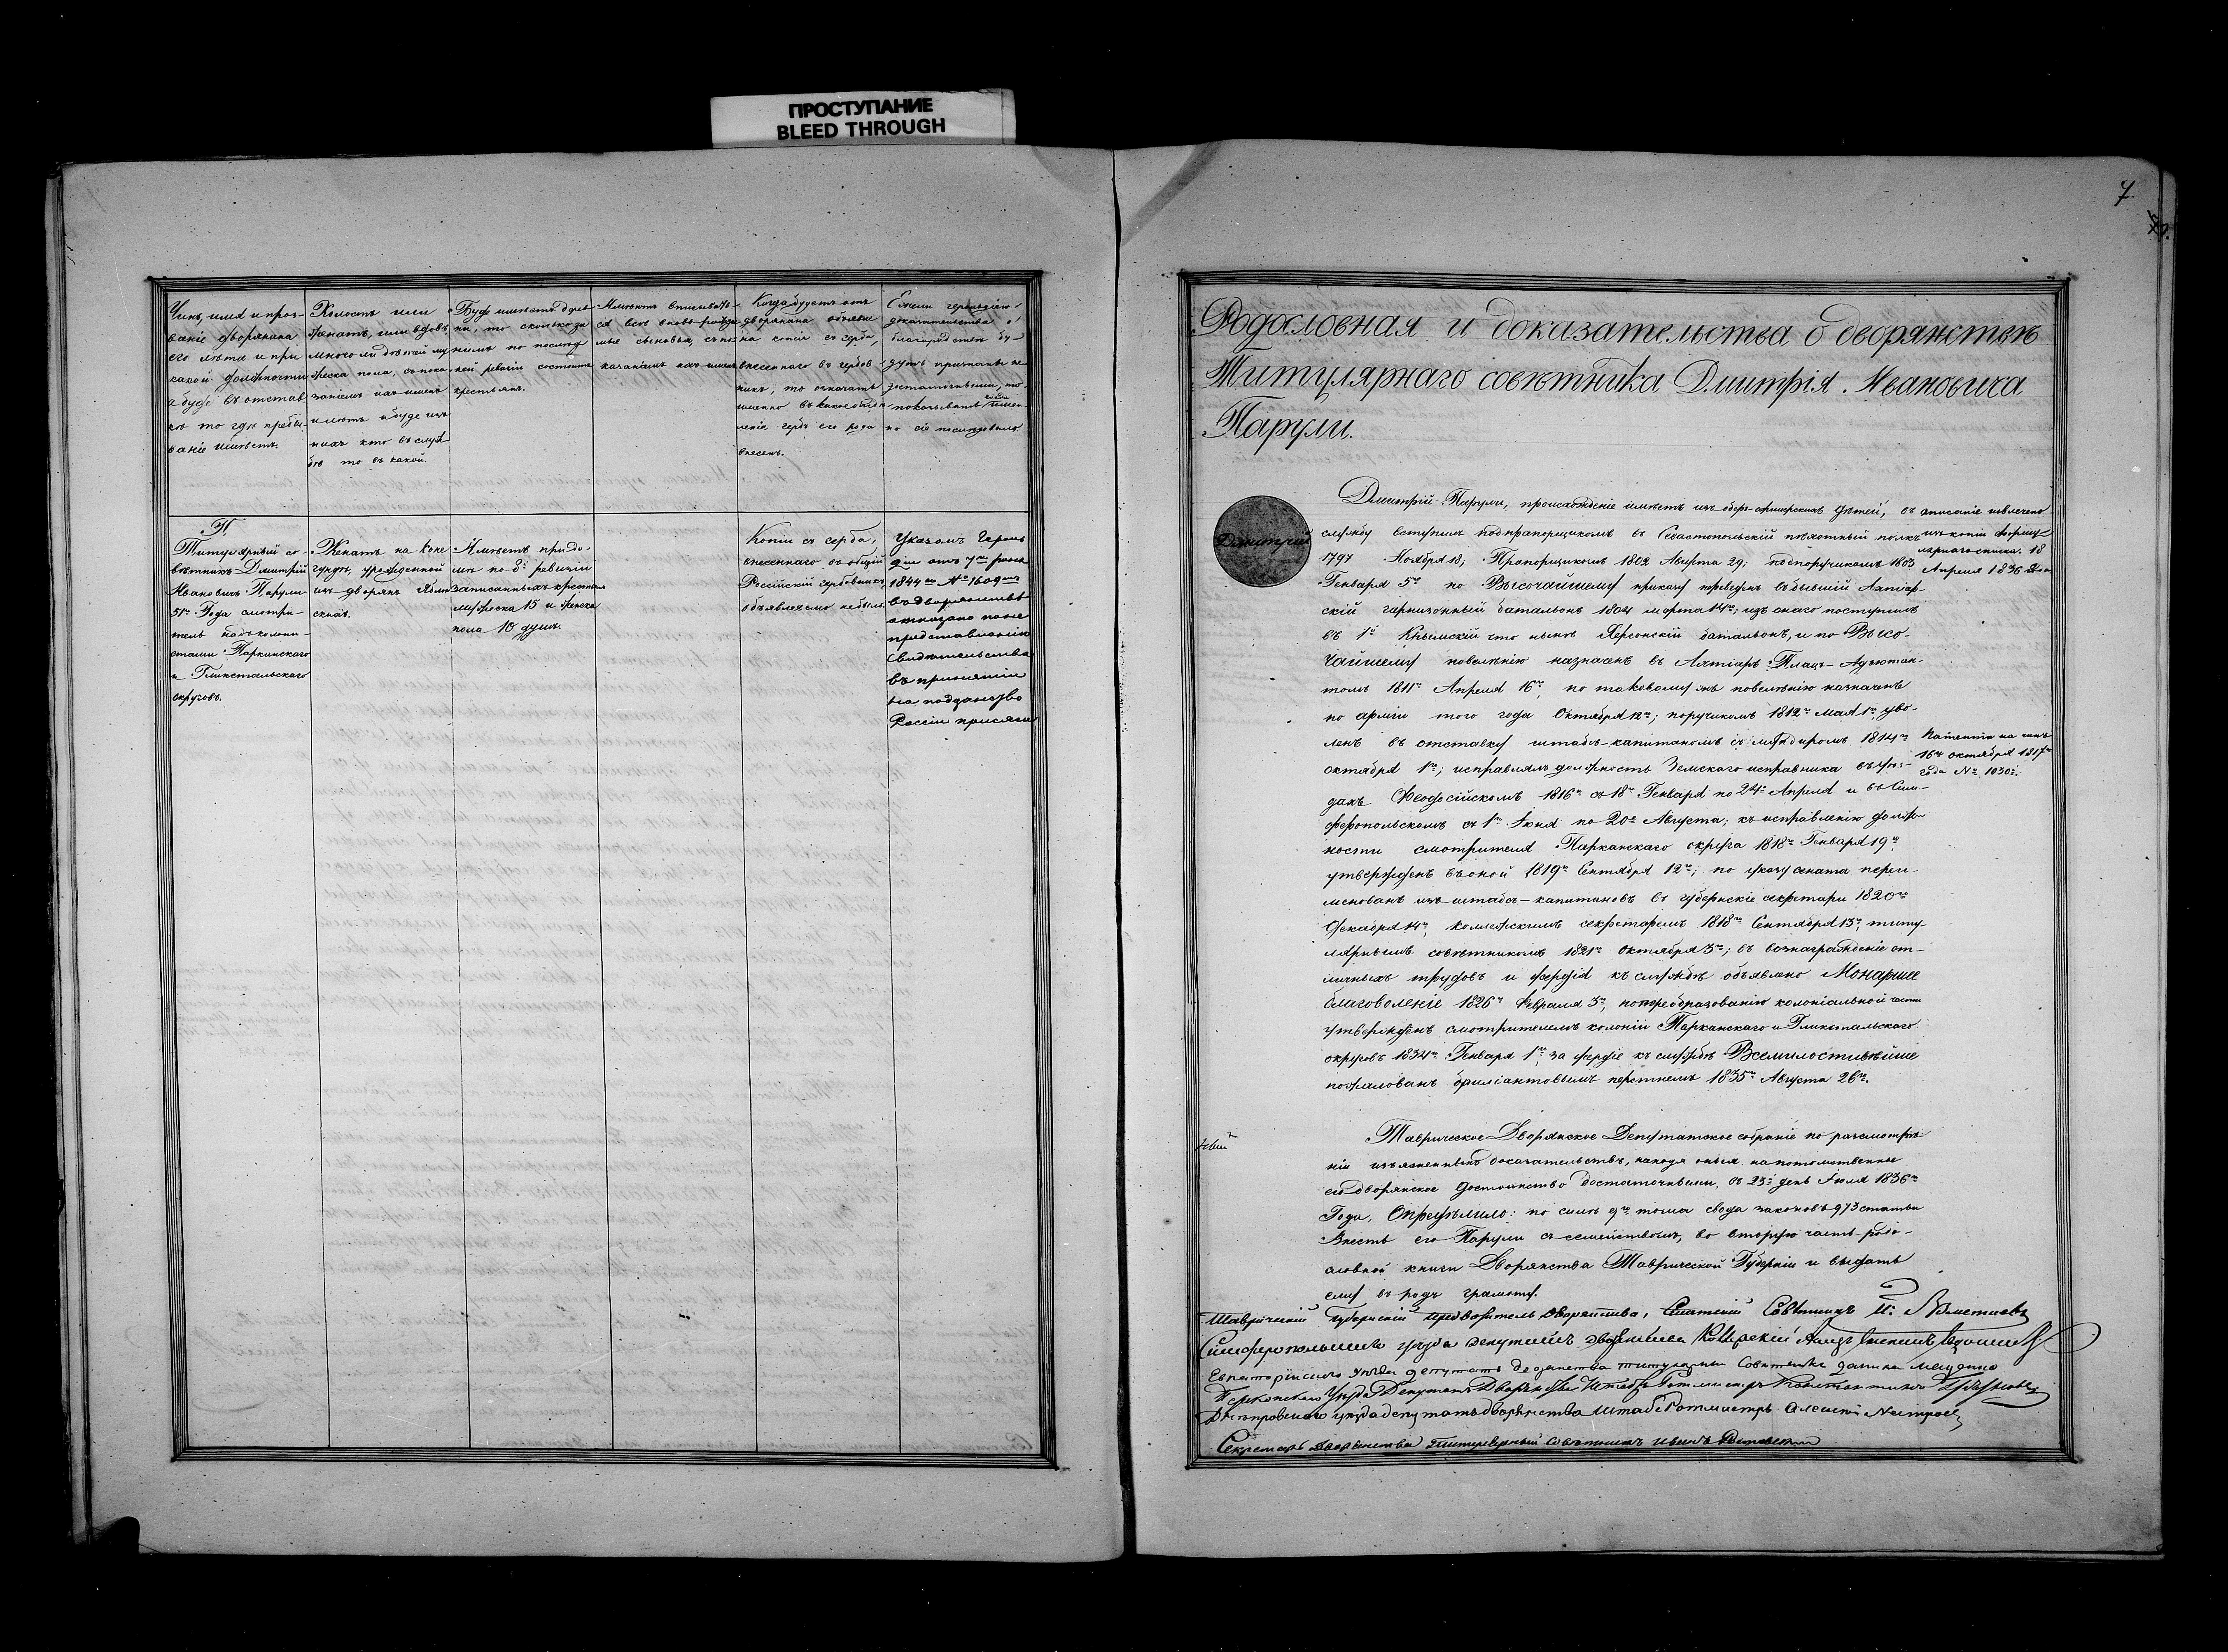 ПРОСТУПАНИЕ
BLEED THROUGH
Чинъ, имя и проз-
ваніе дворянина
его лѣта и при
какой должности
а буде въ отстав
кѣ то гдѣ пребы-
ваніе имѣетъ.
Холостъ или
женатъ, или вдовъ,
много ли дѣтей му
жеска пола, съ пока
заніемъ ихъ именъ
и лѣтъ и буде изъ
нихъ кто въ служ
бѣ то въ какой.
Буде имѣетъ дерев
ни, то сколько за
нимъ по послѣд
ней ревизіи состоитъ
крестьянъ.
Имѣютъ вписывать
ся всѣ вновь рожда
мые сыновья, съ по
казаніемъ ихъ именъ
Когда будетъ отъ
дворянина объявле
на копія съ герба,
внесеннаго въ гербов
никъ, то означать
именно въ какое отдѣ
леніе гербъ его рода
внесенъ.
Ежели герольдіею
доказательства о
благородствѣ бу-
дутъ признаны не
достаточными, то
показывать когда имян-
но сіе послѣдовало
П.
Титулярный со-
вѣтникъ Дмитрій
Ивановичъ Парули
51го Года смотри-
тель надъ колони-
стами Парканскаго
и Гликстальскаго
округовъ.
Женатъ на Коке
гундѣ, урожденной
изъ дворянъ
Имѣетъ при до-
мѣ по 8й ревизіи
записанныхъ крестьянъ
мужеска 15 и женска
пола 10 душъ.
Копіи съ герба,
внесеннаго въ общій
Россійскій гербовникъ
объявляемо не было.
Указомъ Героль
діи отъ 7го
1844го № 1609мъ
въ дворянствѣ
отказано
представленія
свидѣтельства
въ принятіи
на подданство
Россіи присяги
7
Родословная и доказательства о дворянствѣ
Титулярнаго совѣтника Дмитрія Ивановича
Парули.
Дмитрій
Дмитрій Парули, происхожденіе имѣетъ изъ оберъ-офицерскихъ дѣтей, въ
службу вступилъ подпрапорщикомъ въ Севастопольскій пѣхотный полкъ
1797 Ноября 18, Прапорщикомъ 1802 Августа 29; подпоручикомъ 1803
Генваря 5го по Высочайшему приказу переведенъ въ бывшій Ахтіар-
скій гарнизонный баталіонъ 1804 марта 14го; изъ онаго поступилъ
въ 1й Крымскій что нынѣ Херсонскій баталіонъ, и по Высо-
чайшему повелѣнію назначенъ въ Ахтіаръ Плацъ-Адъютан-
томъ 1811го Апреля 16го, по таковому жъ повелѣнію назначенъ
по арміи того года Октября 12го; поручикомъ 1812го Мая 1го, уво-
ленъ въ отставку штабсъ-капитаномъ съ мундиромъ 1814го
октября 1го; исправлялъ должность Земскаго исправника въ уѣз-
дахъ Феодосійскомъ 1816го съ 18го Генваря по 24е Апреля и въ Сим-
феропольскомъ съ 1го Іюня по 20е Августа; къ исправленію долж-
ности смотрителя Парканскаго округа 1818го Генваря 19го,
утвержденъ въ оной 1819го Сентября 12го; по указу сената переи-
менованъ изъ штабсъ-капитановъ въ губернскіе секретари 1820го
Декабря 14го, коллежскимъ секретаремъ 1818го Сентября 13го, титу-
лярнымъ совѣтникомъ 1821го Октября 3го; въ вознагражденіе от-
личныхъ трудовъ и усердія къ службѣ объявлено Монаршее
благоволеніе 1826го Февраля 3го, по преобразованію колоніальной части
утвержденъ смотрителемъ колоній Парканскаго и Гликстальскаго
округовъ 1834го Генваря 1го, за усердіе къ службѣ Всемилостивѣйше
пожалованъ бриліантовымъ перстнемъ 1835го Августа 26го.
описаніе извлечено
изъ копіи формуляр
наго списка. 18
Апреля 1836
Патентъ на чинъ
16го октября 1817го
года № 1030й.
Таврическое Дворянское Депутатское собраніе по разсмотрѣ
ніи изъясненныхъ доказательствъ, находя оныя на потомственное
его дворянское достоинство достаточными, въ 23й день Іюля 1836го
Года, Опредѣлило: по силѣ 9го тома свода законовъ 973 статьи
Внесть его Парули съ семействомъ, во вторую часть родо-
словной книги Дворянства Таврической Губерніи и выдать
ему въ родъ грамоту.
Таврическій Губернскій предводитель дворянства, Статскій Совѣтникъ
Симферопольскаго уѣзда депутатъ дворянства
Евпаторійскаго уѣзда депутатъ дворянства титулярный Совѣтникъ
Перекопскаго Уѣзда Депутатъ Дворянства Штабсъ Ротмистръ Константинъ
Днѣпровскаго уѣзда депутатъ дворянства Штабсъ Ротмистръ Алексѣй
Секретарь дворянства титулярный совѣтникъ